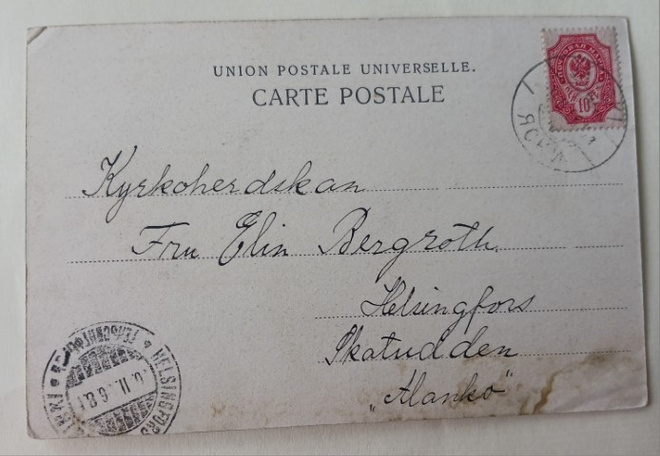 UNION POSTALE UNIVERSELLE.
CARTE POSTALE
10
Kyrkoherdskan
Fru Elin Bergroth
Helsingfors
Skatudden
„Alanko”
HELSINGFORS